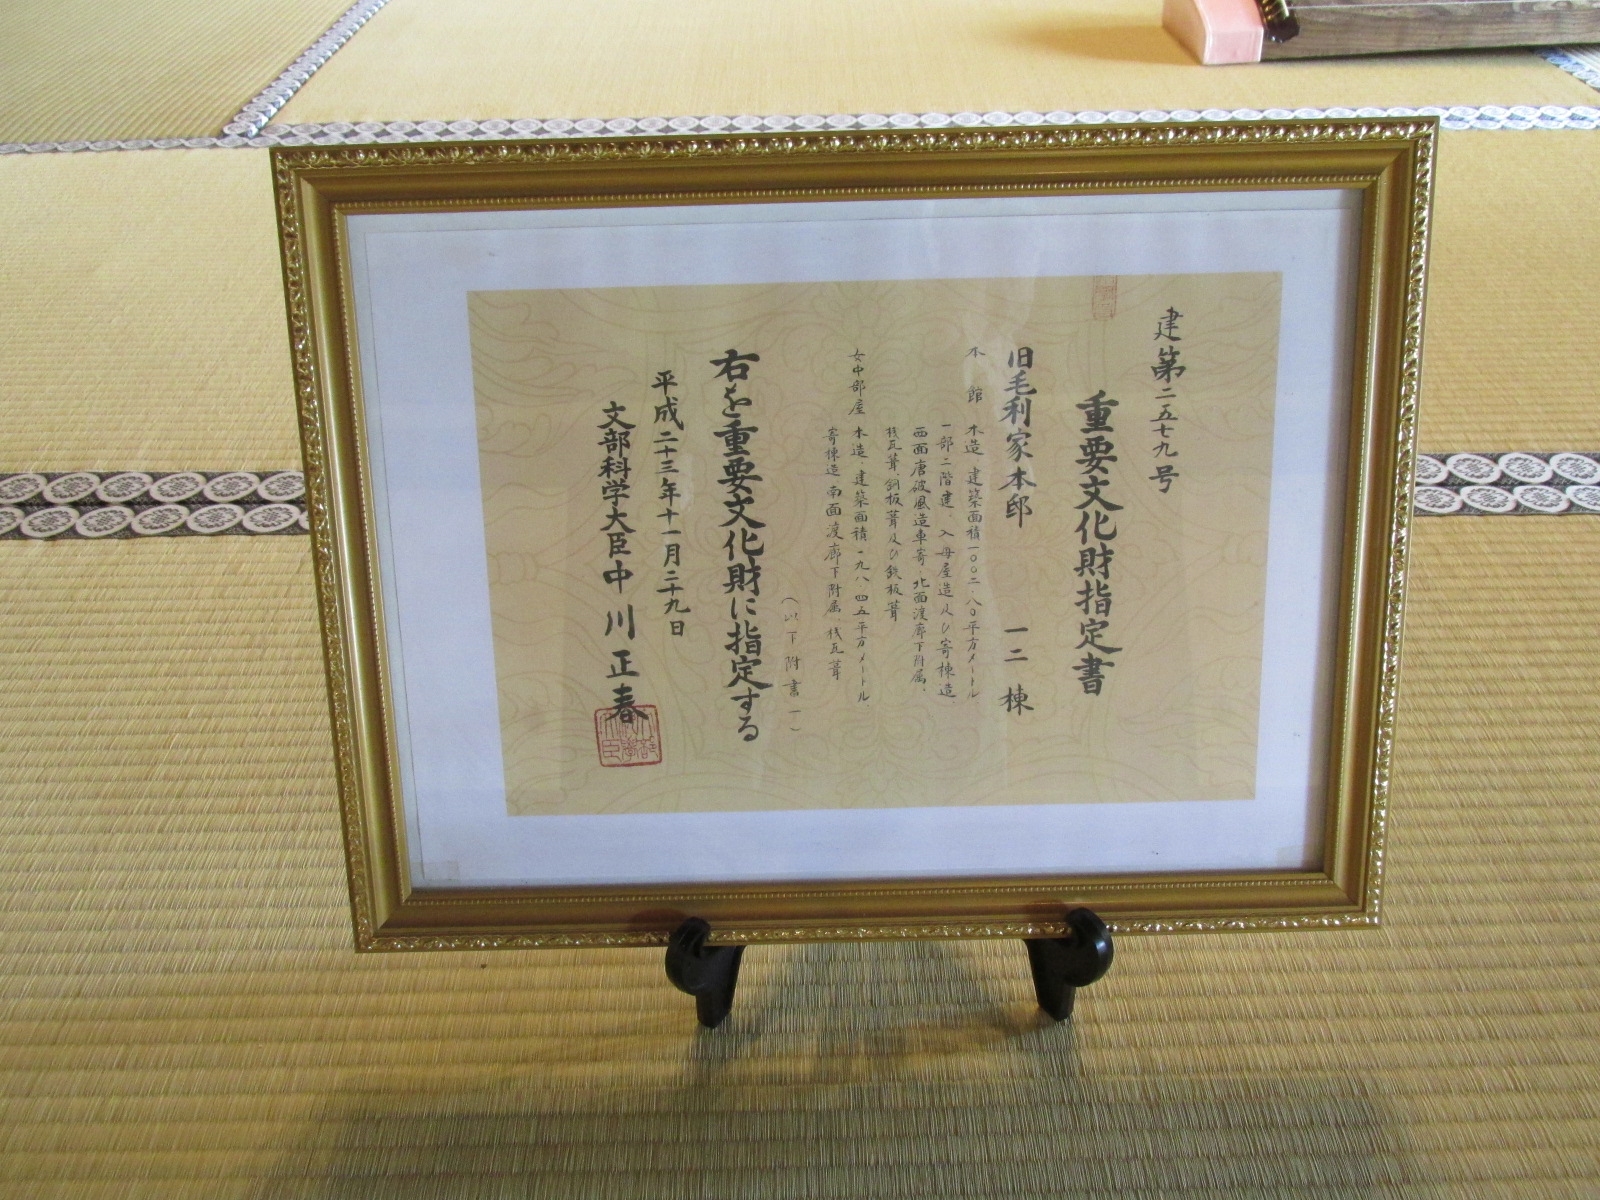 建第二五七九号
重要文化財指定書
旧毛利家本邸 一二棟
本館 木造、建築面積一〇〇二・八〇平方メートル
一部二階建、入母屋造及び寄棟造、
西面唐破風造車寄・北面渡廊下附属、
桟瓦葺、銅板葺及び鉄板葺
女中部屋 木造、建築面積一九八・四五平方メートル、
寄棟造、南面渡廊下附属、桟瓦葺
(以下附書一)
右を重要文化財に指定する
平成二十三年十一月二十九日
文部科学大臣 中川正春